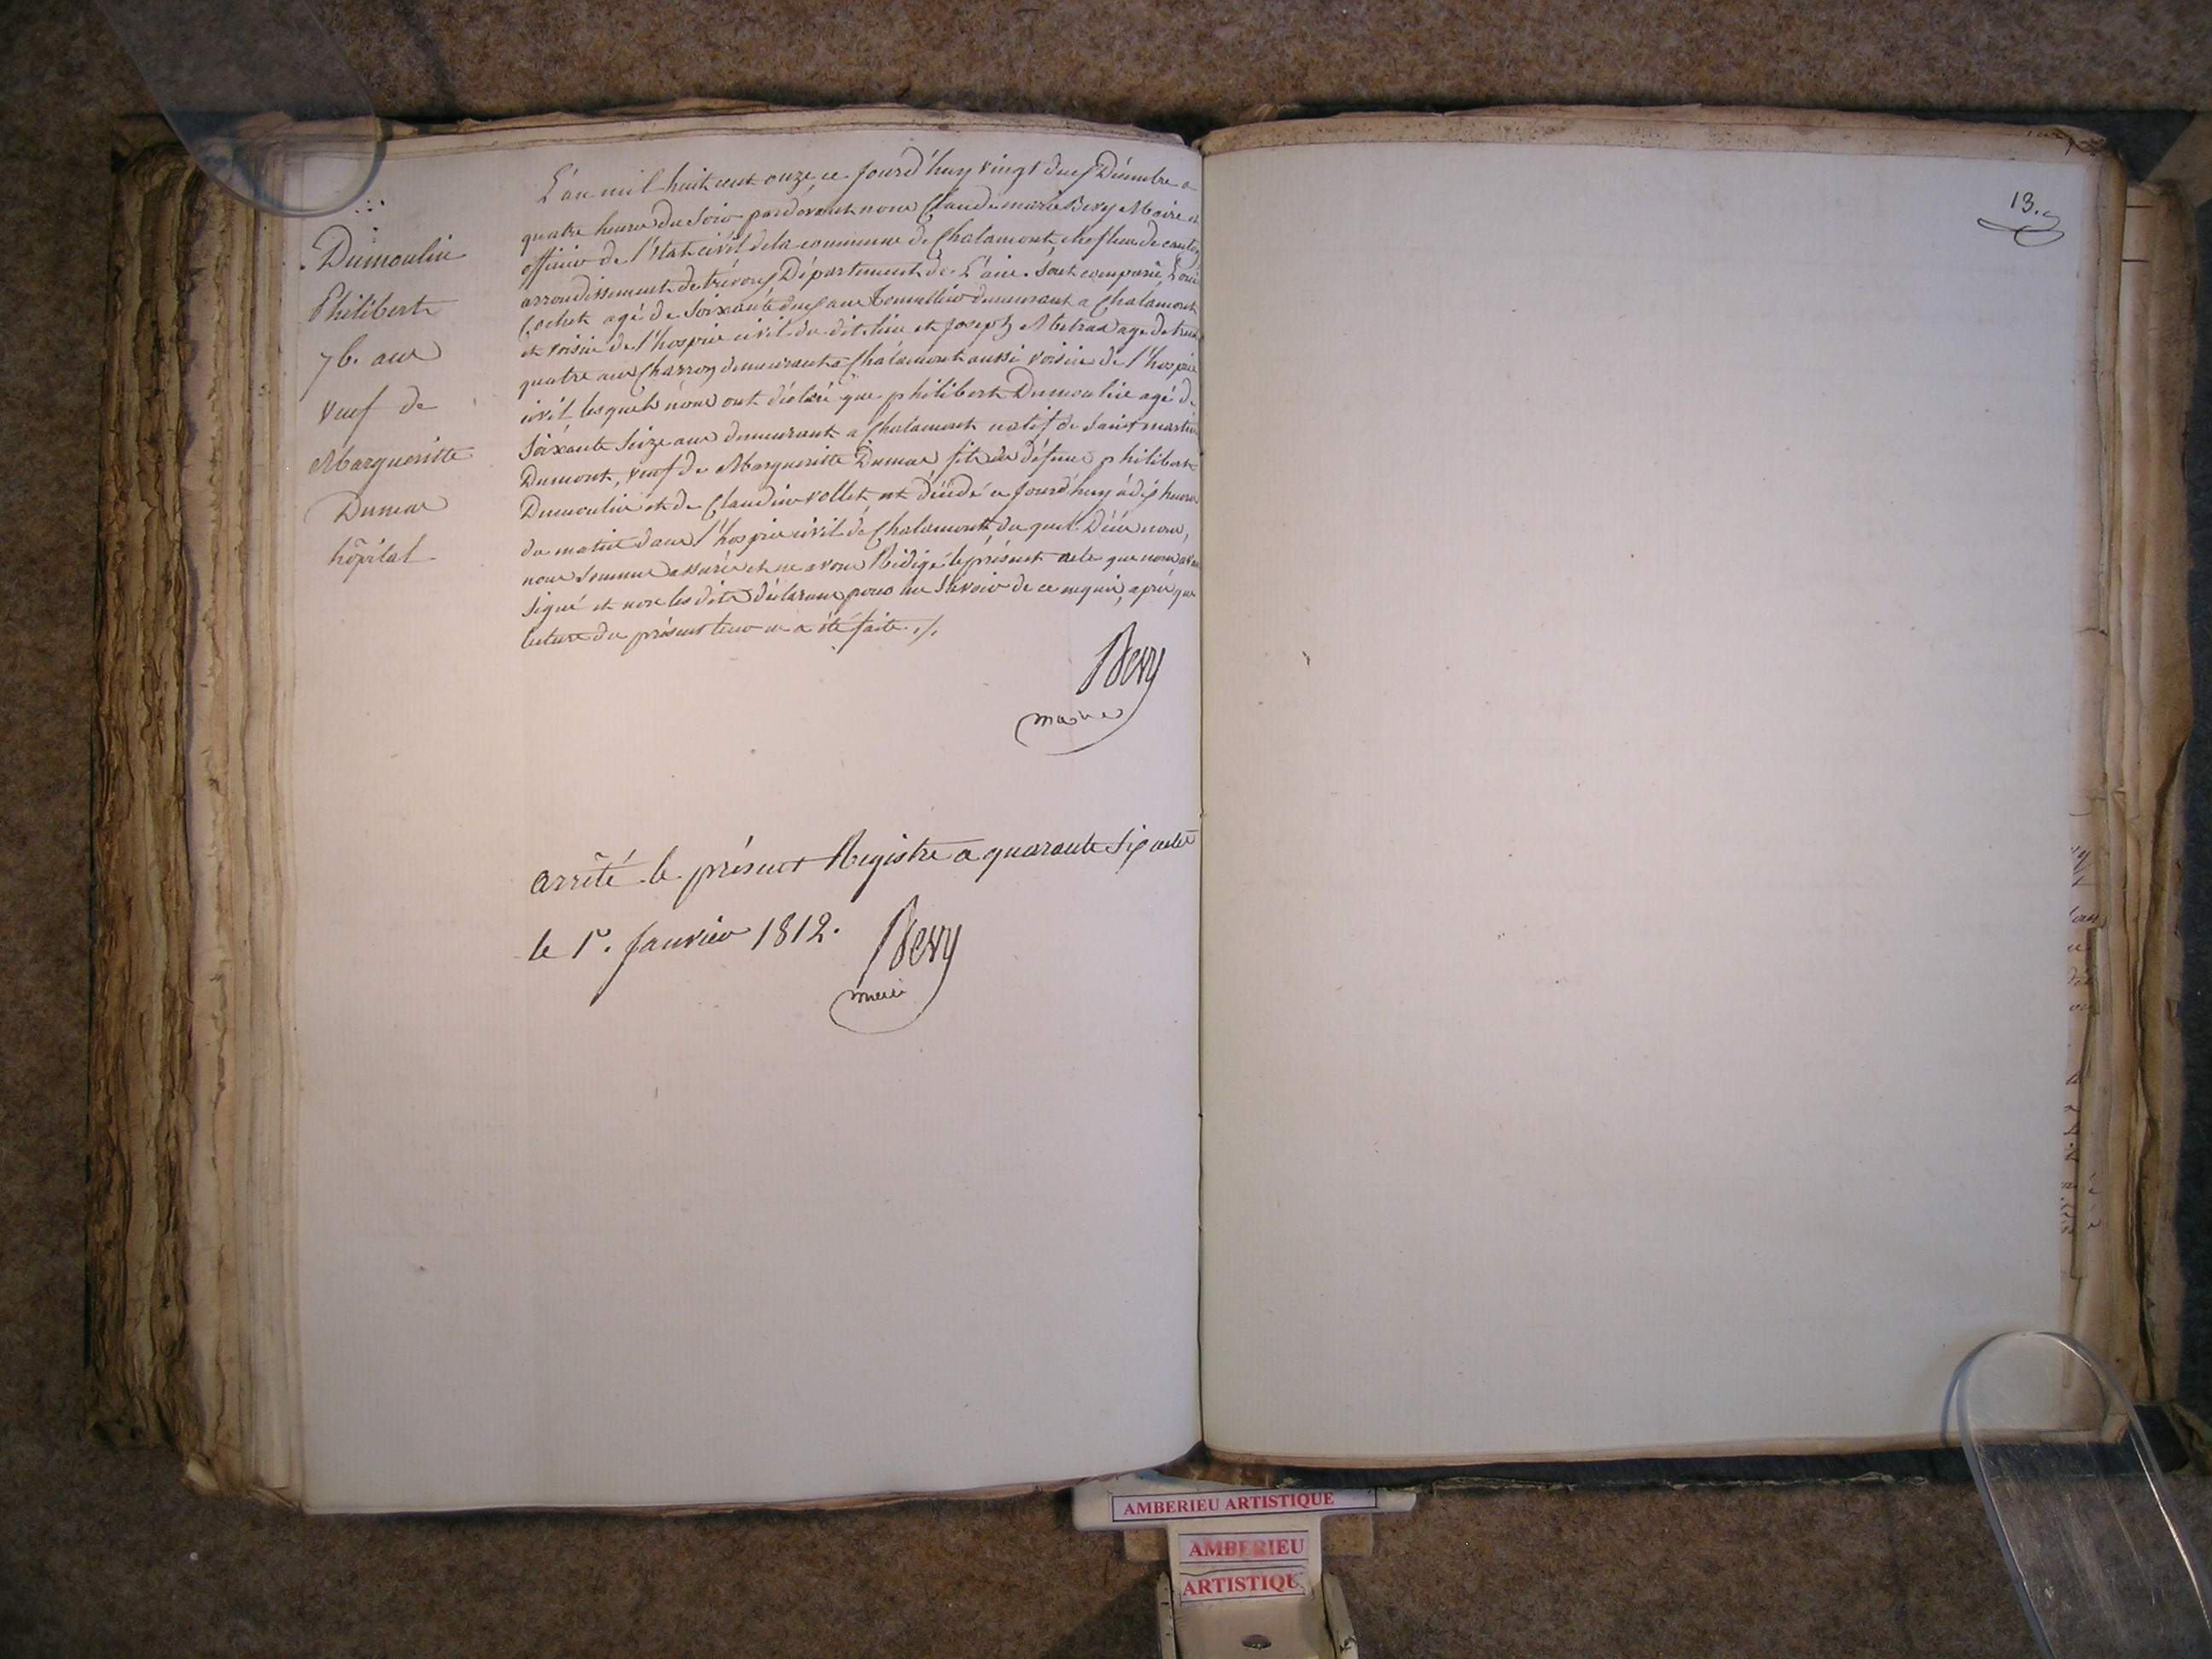 Dumoulin
Philibert
76. ans
veuf de
Margueritte
Dumas
hôpital
L'an mil huit cent onze, ce jourd'huy vingt deux Décembre a
quatre heures du soir pardevant nous Claude marie Bevy Maire et
officier de l'état civil de la commune de Chalamont, chef lieu de canton
arrondissement de trévoux, Département de L'ain. sont comparus, Louis
Cochet agé de soixante deux ans tonnellier demeurant a Chalamont
et voisin de l'hospice civil du dit lieu et joseph Metras agé de trente
quatre ans Charron demeurant a Chalamont aussi voisin de l'hospice
civil lesquels nous ont déclaré que philibert Dumoulin agé de
soixante seize ans demeurant a Chalamont natif de saint martin
Dumont, veuf de Margueritte Dumas fils de défunt philibert
Dumoulin et de Claudine vollet, est décédé ce jourd'huy à dix heures
du matin dans l'hospice civil de Chalamont du quel Décès nous,
nous sommes assurés et en avons Rédigé le présent acte que nous avons
signé et non les dits déclarans pour ne savoir de ce enquis, après que
lecture du présent leur en a été faite ./.
Bevy
maire
arrêté le présent Registre a quarante six actes
le 1er. Janvier 1812.
Bevy
maire
13.
AMBERIEU ARTISTIQUE
AMBERIEU
ARTISTIQUE